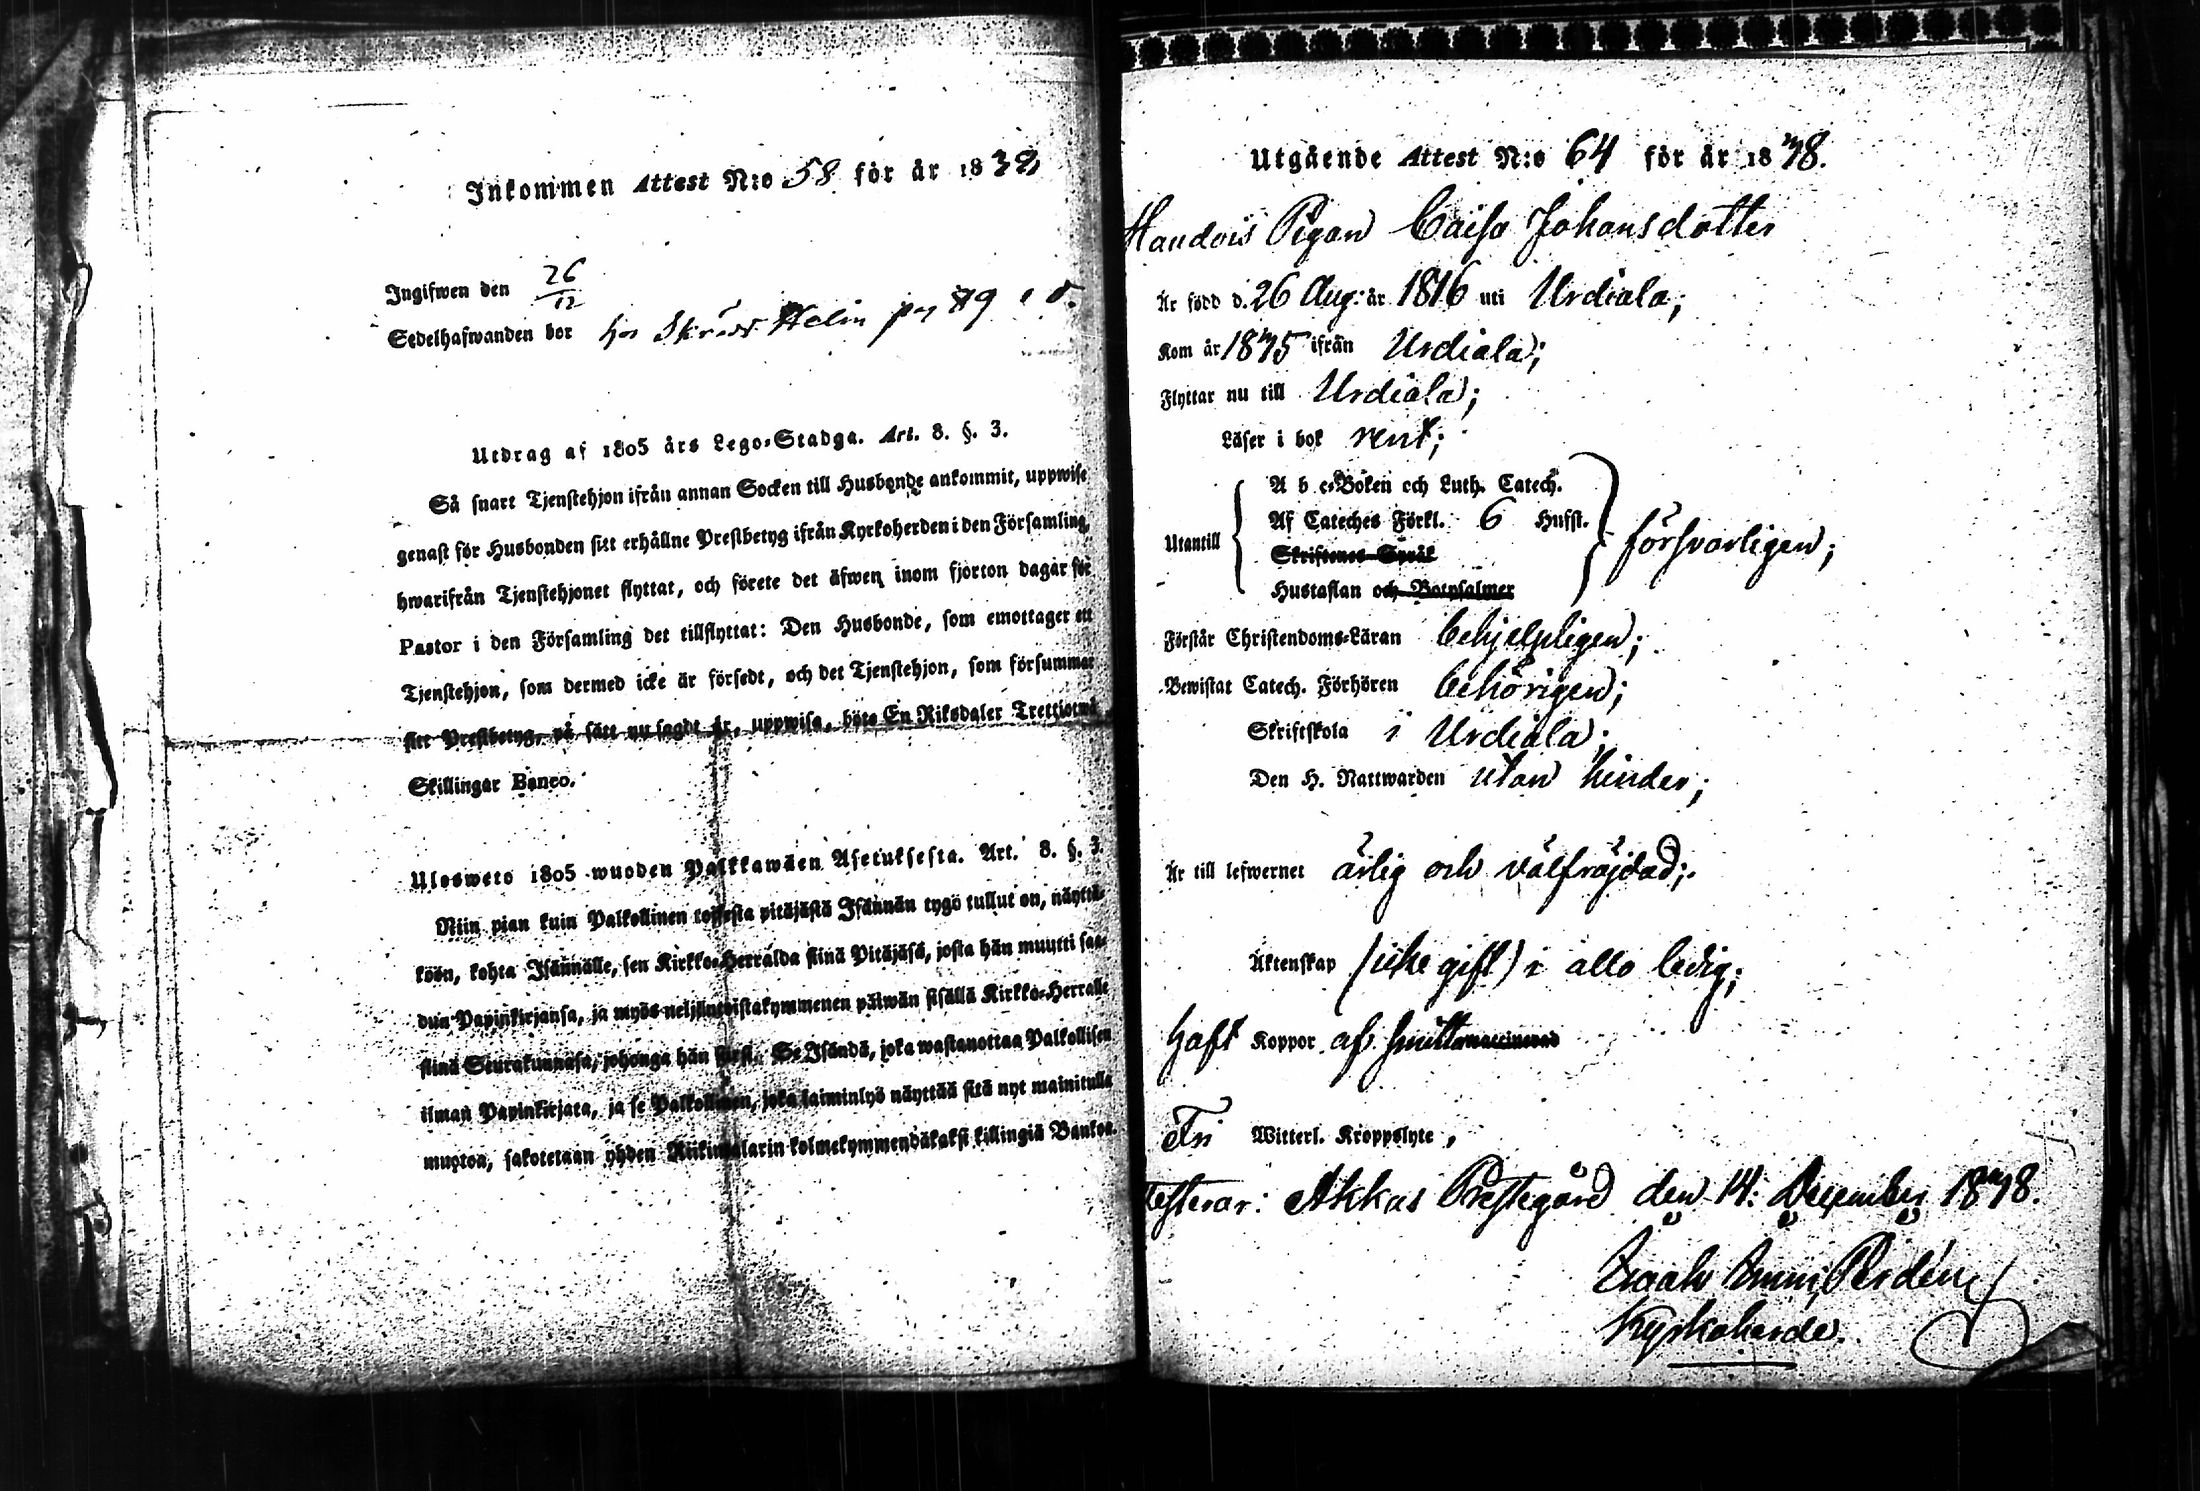 Inkommen Attest N:o 58 för år 1838
Ingifwen den 26/12
Sedelhafwanden bor hos Skrädd. Helin på 89
Utdrag af 1805 års Lego-Stadga. Art. 8. §. 3.
Så snart Tjenstehjon ifrån annan Socken till Husbonde ankommit, uppwise
genast för Husbonden sitt erhållne Prestbetyg ifrån Kyrkoherden i den Församling,
hwarifrån Tjenstehjonet flyttat, och förete det äfwen inom fjorton dagar för
Pastor i den Församling det tillflyttat: Den Husbonde, som emottager ett
Tjenstehjon, som dermed icke är försedt, och det Tjenstehjon, som försummar
sitt Prestbetyg, på sätt nu sagdt är, uppwisa, böte En Riksdaler Trettiotwå
Skillingar Banco.
Ulosweto 1805 wuoden Palkkawäen Asetuksesta. Art. 8. §. 3.
Niin pian kuin Palkollinen toisesta pitäjästä Isännän tygö tullut on, näyttä-
köön, kohta Isännälle, sen Kirkko-Herralda siinä Pitäjäsä, josta hän muutti saa-
dun Papinkirjansa, ja myös neljäntoistakymmenen päiwän sisällä Kirkko-Herralle
siinä Seurakunnasa, johonga hän siirsi. Se Isändä, joka wastanottaa Palkollisen
ilman Papinkirjata, ja se Palkollinen, joka laiminlyö näyttää sitä nyt mainitulla
muotoa, sakotetaan yhden Riikintalarin kolmekymmendäkaksi killingiä Bankoa.
Utgående Attest N:o 64 för år 1838.
Handois Pigan Caisa Johansdotter
Är född d. 26 Aug: år 1816 uti Urdiala;
Kom år 1835 ifrån Urdiala;
Flyttar nu till Urdiala;
Läser i bok rent;
Utantill
A b c-Boken och Luth. Catech.
Af Cateches Förkl. 6 Hufst.
Skriftenes Språk
Hustaflan och Botpsalmer
försvarligen;
Förstår Christendoms-Läran behjelpligen;
Bewistat Catech. Förhören behörigen;
Skriftskola i Urdiala;
Den H. Nattwarden utan hinder;
Är till lefwernet ärlig och välfräjdad;
Äktenskap (icke gift) i allo ledig;
Haft Koppor af smitta waccinerad
Fri Witterl. Kroppslyte,
testerar: Akkas Prestegård den 14: December 1838.
Isaak Perdén
Kyrkoherde.